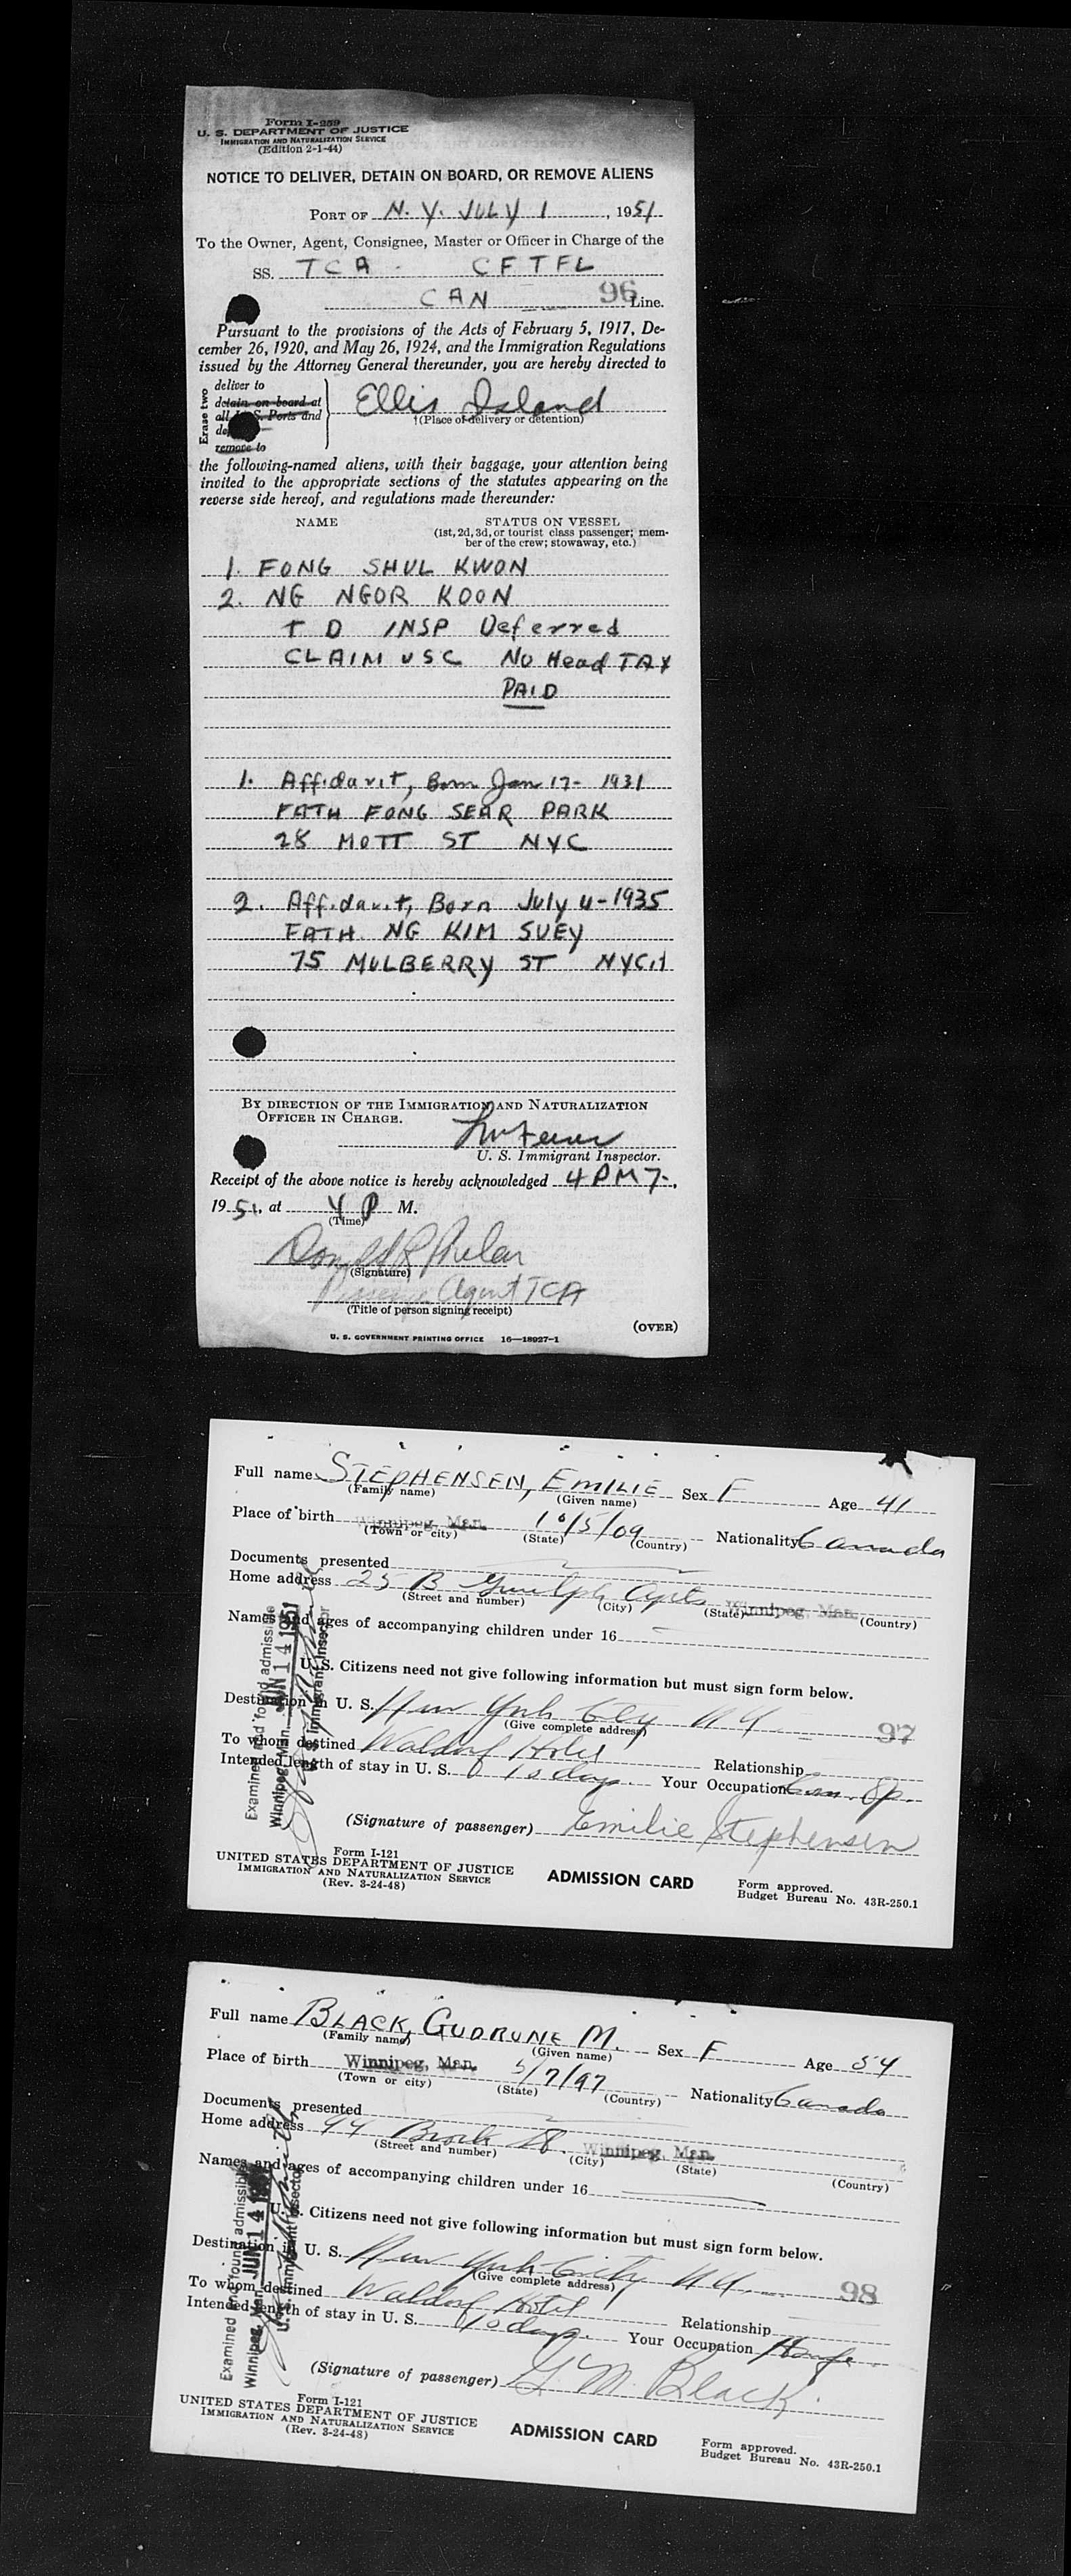 Form I-259
U. S. DEPARTMENT OF JUSTICE
IMMIGRATION AND NATURALIZATION SERVICE
(Edition 2-1-44)
NOTICE TO DELIVER, DETAIN ON BOARD, OR REMOVE ALIENS
PORT OF N. Y. JULY 1, 1951
To the Owner, Agent, Consignee, Master or Officer in Charge of the
SS. TCA - CFTFL
CAN 96 Line.
Pursuant to the provisions of the Acts of February 5, 1917, De-
cember 26, 1920, and May 26, 1924, and the Immigration Regulations
issued by the Attorney General thereunder, you are hereby directed to
Erase two
deliver to
detain on board at
all U. S. Ports and
remove to
Ellis Island
(Place of delivery or detention)
the following-named aliens, with their baggage, your attention being
invited to the appropriate sections of the statutes appearing on the
reverse side hereof, and regulations made thereunder:
NAME STATUS ON VESSEL
(1st, 2d, 3d, or tourist class passenger; mem-
ber of the crew; stowaway, etc.)
1. FONG SHUL KWON
2. NG NGOR KOON
T D INSP Deferred
CLAIM USC No Head TAX
PAID
1. Affidavit, Born Jan 17 - 1931
FATH FONG SEAR PARK
28 MOTT ST NYC
2. Affidavit, Born July 4 - 1935
FATH NG KIM SUEY
75 MULBERRY ST NYC
BY DIRECTION OF THE IMMIGRATION AND NATURALIZATION
OFFICER IN CHARGE.
U. S. Immigrant Inspector.
Receipt of the above notice is hereby acknowledged 4 PM 7-,
1951, at 4 P M.
(Time)
Donald R Phelan
(Signature)
Agent TCA
(Title of person signing receipt)
(OVER)
U. S. GOVERNMENT PRINTING OFFICE 16—18927-1
Full name STEPHENSEN, EMILIE Sex F Age 41
(Family name) (Given name)
Place of birth Winnipeg, Man. 10/5/09 Nationality Canada
(Town or city) (State) (Country)
Documents presented
Home address 25 B Guelph Apts Winnipeg, Man.
(Street and number) (City) (State) (Country)
Names and ages of accompanying children under 16
U. S. Citizens need not give following information but must sign form below.
Destination in U. S. New York City N Y 97
(Give complete address)
To whom destined Waldorf Hotel Relationship
Intended length of stay in U. S. 10 days. Your Occupation Com. Op.
(Signature of passenger) Emilie Stephensen
Examined and found admissible
Winnipeg, Man. JUN 14 1951
U. S. Immigrant Inspector
Form I-121
UNITED STATES DEPARTMENT OF JUSTICE
IMMIGRATION AND NATURALIZATION SERVICE
(Rev. 3-24-48)
ADMISSION CARD
Form approved.
Budget Bureau No. 43R-250.1
Full name BLACK, GUDRUNE M. Sex F Age 54
(Family name) (Given name)
Place of birth Winnipeg, Man. 5/7/97 Nationality Canada
(Town or city) (State) (Country)
Documents presented
Home address 44 Brock St. Winnipeg, Man.
(Street and number) (City) (State) (Country)
Names and ages of accompanying children under 16
U. S. Citizens need not give following information but must sign form below.
Destination in U. S. New York City N Y 98
(Give complete address)
To whom destined Waldorf Hotel Relationship
Intended length of stay in U. S. 10 days. Your Occupation
(Signature of passenger) G M. Black
Examined and found admissible
Winnipeg, Man. JUN 14
U. S. Immigrant Inspector
Form I-121
UNITED STATES DEPARTMENT OF JUSTICE
IMMIGRATION AND NATURALIZATION SERVICE
(Rev. 3-24-48)
ADMISSION CARD
Form approved.
Budget Bureau No. 43R-250.1